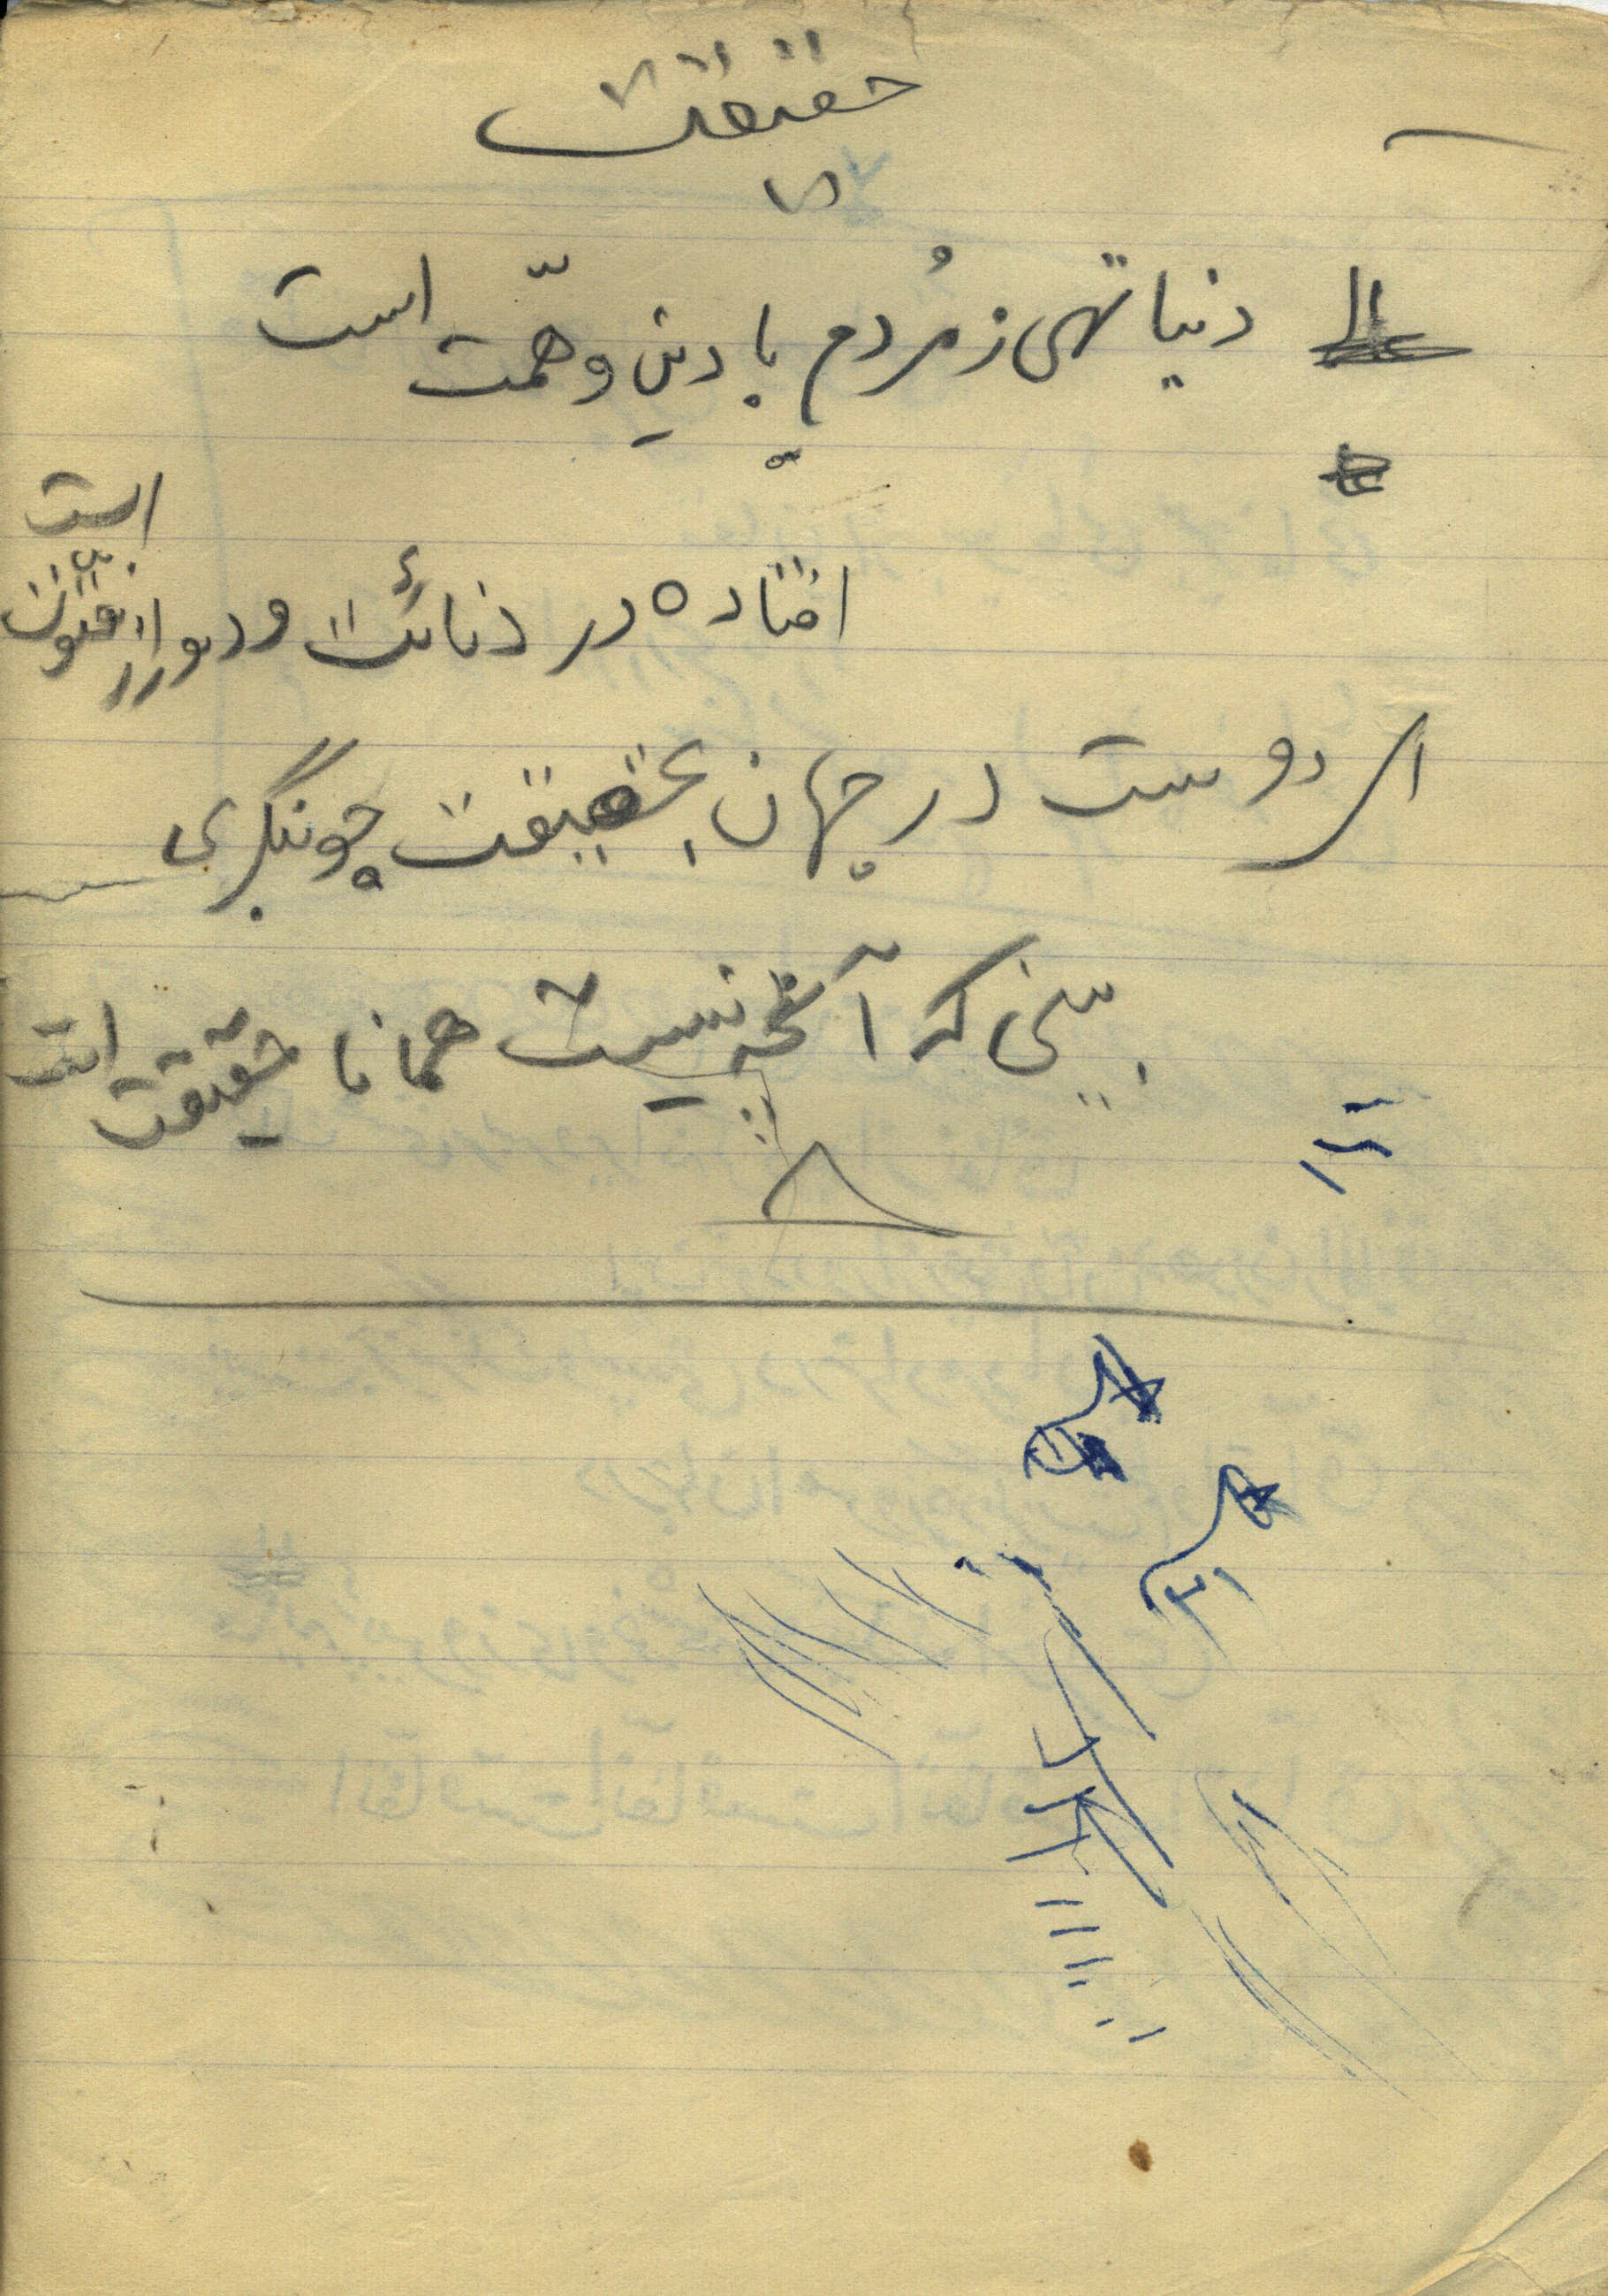 حقیقت
دنیا تهی ز مُردم با دین و همّت است
افتاده در دنائت و دور از فتوت است
ای دوست در جهان بحقیقت چو بنگری
بینی که آنچه نیست همانا حقیقت است